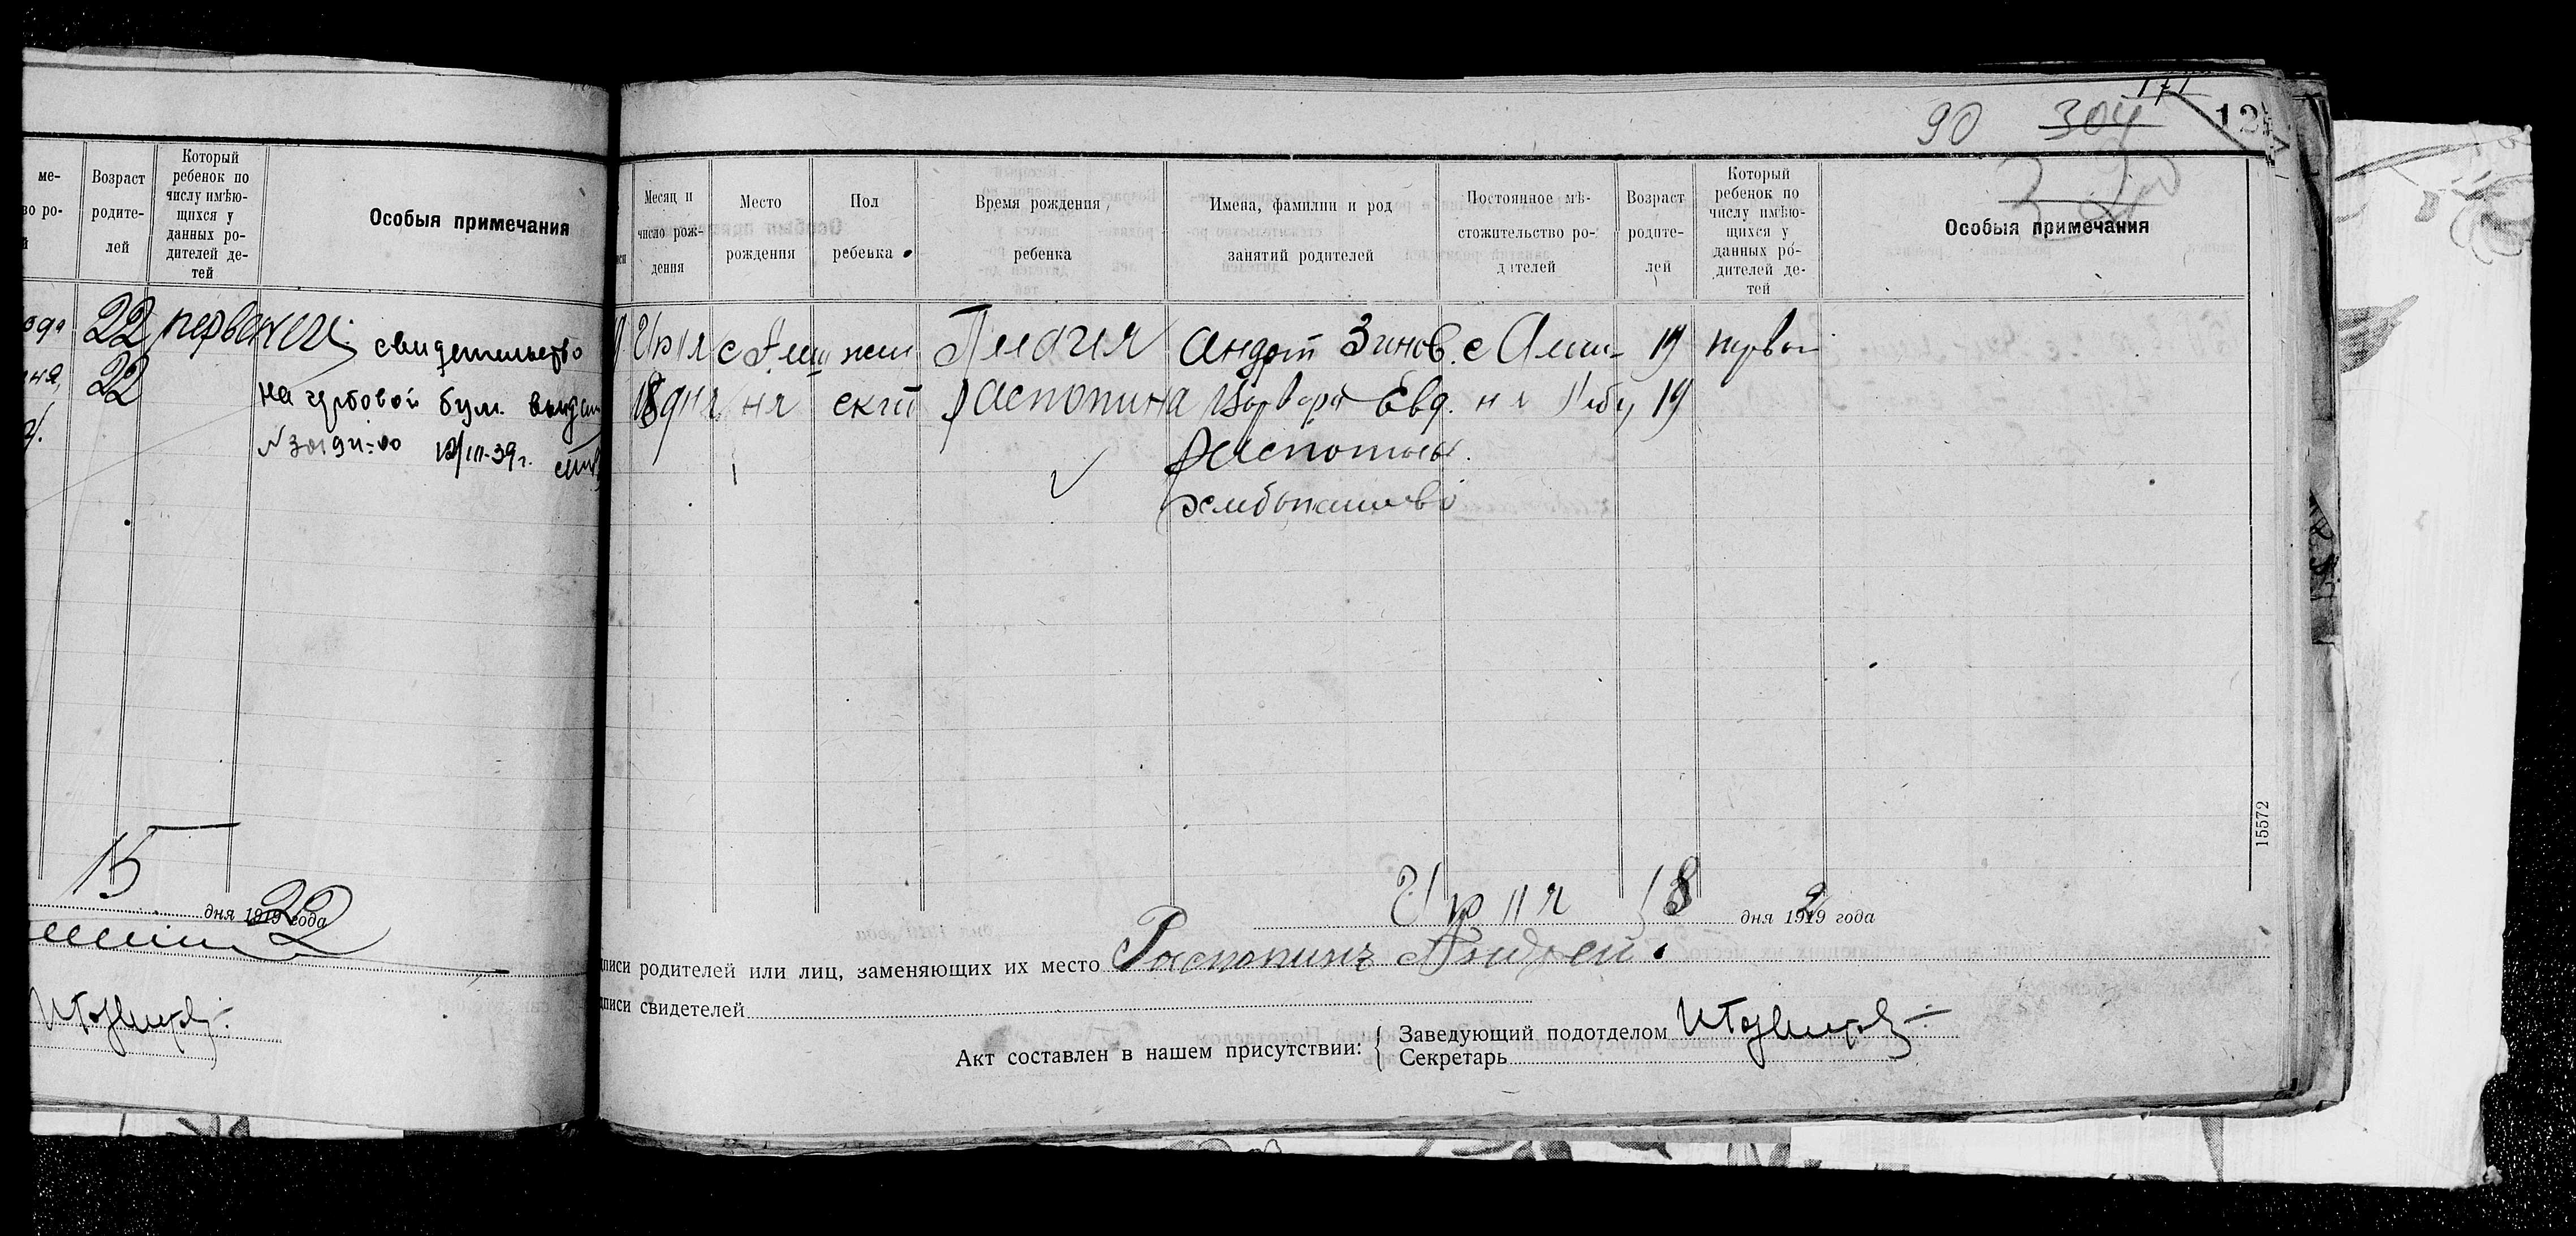 ме-
во ро-
й
Возраст
родите-
лей
Который
ребенок по
числу имѣю-
щихся у
данных ро-
дителей де-
тей
Особыя примечания
22 первенец
22
свидетельство
на гербовой бум. выдан
12/III-39г.
15
дня 1919 года
22
90 304 171 12
Месяц и
число рож-
дения
Место
рождения
Пол
ребенка
Время рождения,
ребенка
Имена, фамилии и род
занятий родителей
Постоянное мѣ-
стожительство ро-
дителей
Возраст
родите-
лей
Который
ребенок по
числу имѣю-
щихся у
данных ро-
дителей де-
тей
Особыя примечания
Июля с жен Андрей Зинов. с 19 первый
18 дня ня ский Распопина Варвара Евд. 19
Распопины
хлебопашево
15572
Июля 18 дня 1919 года
дписи родителей или лиц, заменяющих их место Распопинъ Андрей.
дписи свидетелей
Акт составлен в нашем присутствии: { Заведующий подотделом
Секретарь